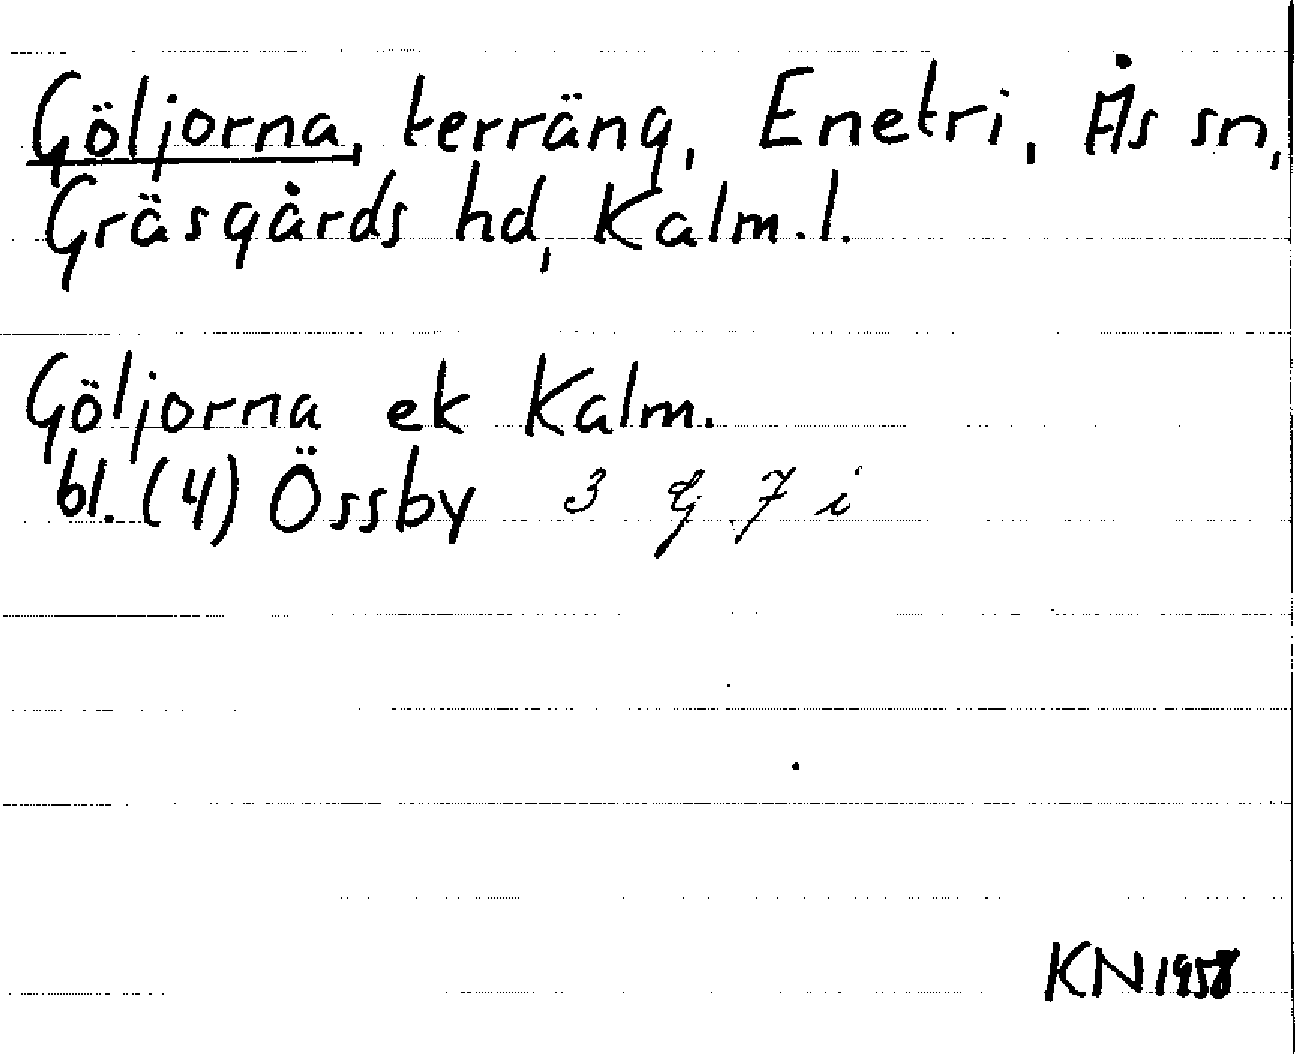 Göljorna, terräng, Enetri, Ås sn,
Gräsgårds hd, Kalm.l.
Göljorna ek Kalm.
bl. (4) Össby 3 G 7 i
KN 1958